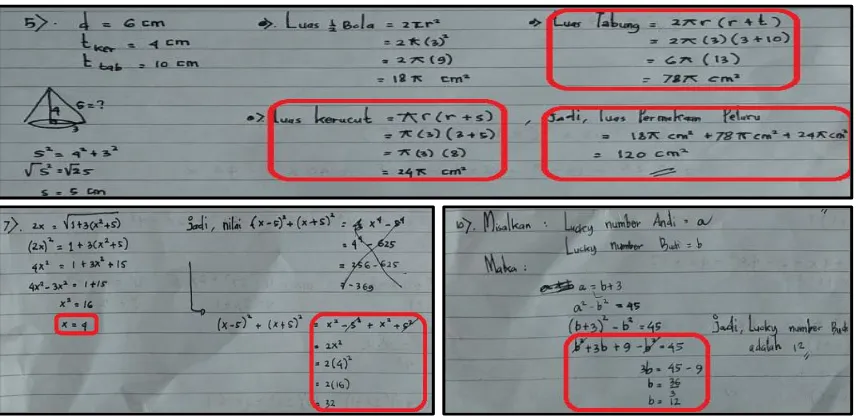 5). d = 6 cm
t ker = 4 cm
t tab = 10 cm
4
s = ?
3
s² = 4² + 3²
√s² = √25
s = 5 cm
Luas ½ Bola = 2πr²
= 2π(3)²
= 2π(9)
= 18π cm²
Luas Tabung = 2πr (r + t)
= 2π(3)(3+10)
= 6π (13)
= 78π cm²
Luas kerucut = πr(r+s)
= π(3)(3+5)
= π(3)(8)
= 24π cm²
, Jadi, luas Permukaan Peluru
= 18π cm² + 78πcm² + 24πcm²
= 120 cm²
7). 2x = √1+3(x²+5)
(2x)² = 1 + 3(x²+5)
4x² = 1 + 3x² + 15
4x² - 3x² = 1+15
x² = 16
x = 4
Jadi, nilai (x-5)² + (x+5)² = x⁴ - 5⁴
= 4⁴ - 625
= 256 - 625
= -369
(x-5)² + (x+5)² = x² - 5² + x² + 5²
= 2x²
= 2(4)²
= 2(16)
= 32
10). Misalkan : Lucky number Andi = a
Lucky number Budi = b
Maka :
a = b+3
a² - b² = 45
(b+3)² - b² = 45
b² + 3b + 9 - b² = 45
3b = 45 - 9
b = 36/3
b = 12
Jadi, Lucky number Budi
adalah 12